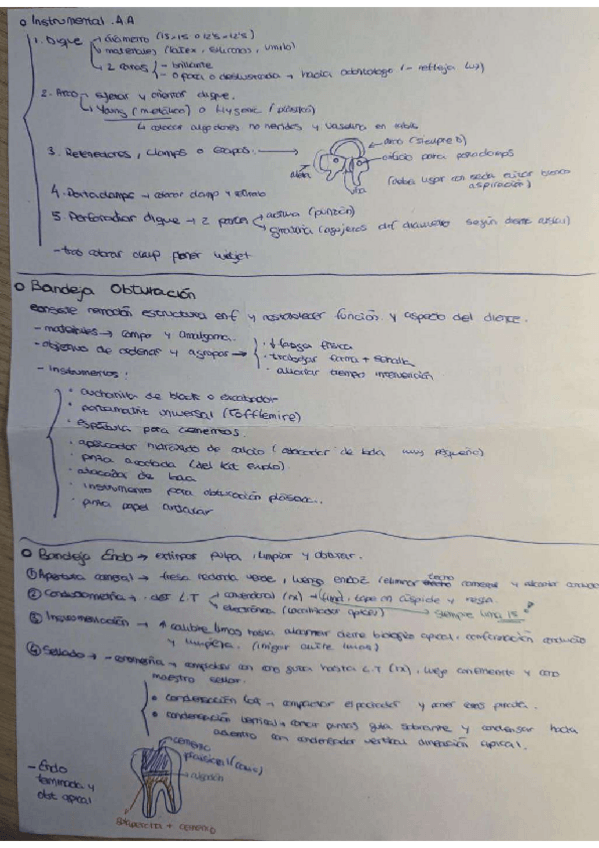 o Instrumental A.A
1. Dique → diámetro (15x15 o 12'5x12'5
→ materiales (latex, siliconas, vinilo)
→ 2 caras - brillante
- opaca o deslustrada → hacia odontologo (- refleja luz)
2. Arco → sujetar y orientar dique.
→ Young (metálico) o Hygenic (plástico)
↳ colocar algodones no heridas y vaselina en
3. Retenedores, clamps o grapas. →
arco (siempre D)
orificio para portaclamps
aleta
(debe ligar con seda evitar bronco aspiración)
4. Portaclamps → colocar clamp y retirarlo
5. Perforador dique → 2 partes activa (punzón)
giratoria (agujeros dif diametro según diente aislar)
- tras colocar clamp poner wedjet
o Bandeja Obturación
consiste remoción estructura enf y restablecer función y aspecto del diente.
- materiales → compo y amalgama.
- objetivo de ordenar y agrupar → · ↓ fatiga física
· trabajar forma + sencilla
· acortar tiempo intervención
- Instrumentos:
· cucharilla de black o excavador
· portamatriz universal (tofflemire)
· espátula para cementos.
· aplicador hidróxido de calcio (atacador de bola muy pequeño)
· pinza acodada (del kit endo).
· atacador de bola
· instrumento para obturación plástica..
· pinza papel articular
o Bandeja Endo → extirpar pulpa, limpiar y obturar.
① Apertura cameral → fresa redonda verde, luego endoZ (eliminar techo cameral y
② Conductometría → det L.T convencional (rx) → (lima, tope en cúspide y regla.
electrónica (localizador apical) → siempre lima 15
③ Instrumentación → ↑ calibre limas hasta alcanzar cierre biológico apical, conformación conducto
y limpieza. (irrigar entre limas)
④ Sellado → - cronometría → comprobar con cono guta hasta L.T (rx), luego con cemento y cono
maestro sellar.
· condensación lat → compactar espaciador y poner conos
· condensación vertical → cortar puntas guta sobrante y condensar hacia
adentro con condensador vertical dirección apical.
- Endo
terminada y
obt apical
cemento
provisional (cavit)
algodón
Gutapercha + cemento